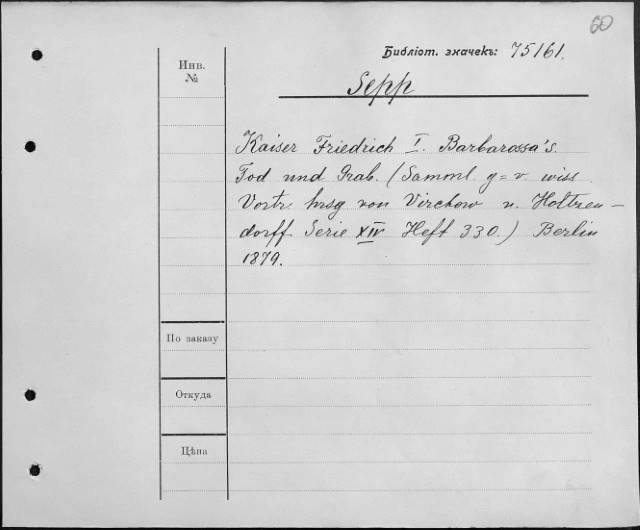 60
Библіот. значекъ: 75161.
Инв.
№
Sepp
Kaiser Friedrich I. Barbarossa's.
Tod und Grab. (Samml. g=v. wiss.
Vortr. hrsg von Virchow u. Holtzen-
dorff. Serie XIV Heft 330.) Berlin
1879.
По заказу
Откуда
Цѣна